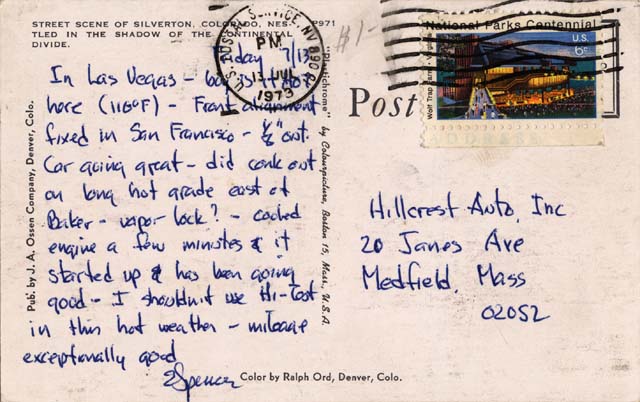 STREET SCENE OF SILVERTON, COLORADO, NES-
TLED IN THE SHADOW OF THE CONTINENTAL
DIVIDE.
P971
U.S. POSTAL SERVICE, NV 890
PM
13 JUL
1973
$1-
National Parks Centennial
U.S.
6c
Wolf Trap Farm, Virginia
Post
ADDRESS
day 7/13
In Las Vegas - boy is it hot
here (116°F) - Front alignment
fixed in San Francisco - ½" out.
Car going great - did conk out
on long hot grade east of
Baker - vapor lock? - cooled
engine a few minutes & it
started up & has been going
good - I shouldn't use Hi-Test
in this hot weather - mileage
exceptionally good
Spencer
Pub. by J. A. Ossen Company, Denver, Colo.
"Plastichrome" by Colourpicture, Boston 15, Mass., U.S.A.
Hillcrest Auto, Inc
20 Janes Ave
Medfield, Mass
02052
Color by Ralph Ord, Denver, Colo.